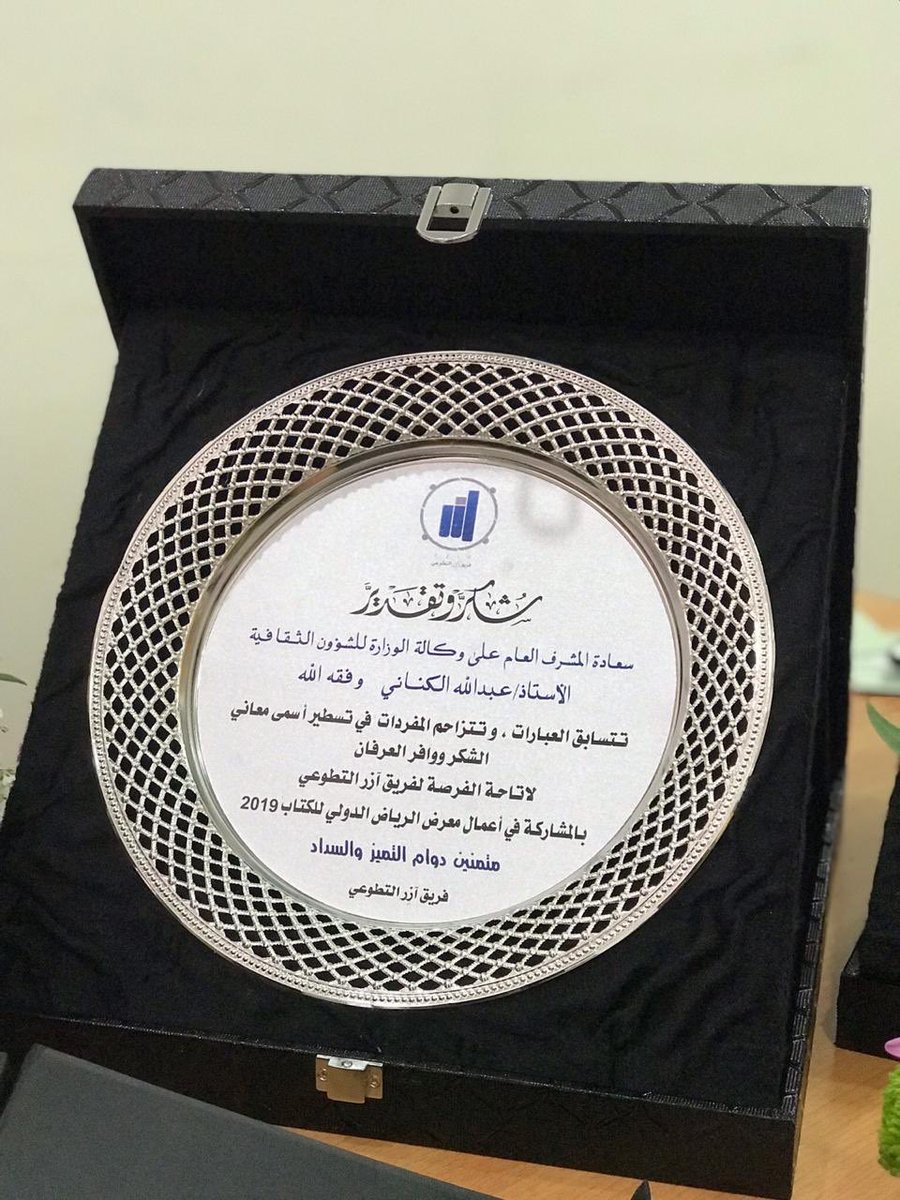 فريق آزر التطوعي
شكر وتقدير
سعادة المشرف العام على وكالة الوزارة للشؤون الثقافية
الاستاذ/عبدالله الكناني وفقه الله
تتسابق العبارات ، وتتزاحم المفردات في تسطير أسمى معاني
الشكر ووافر العرفان
لاتاحة الفرصة لفريق آزر التطوعي
بالمشاركة في أعمال معرض الرياض الدولي للكتاب 2019
متمنين دوام التميز والسداد
فريق آزر التطوعي